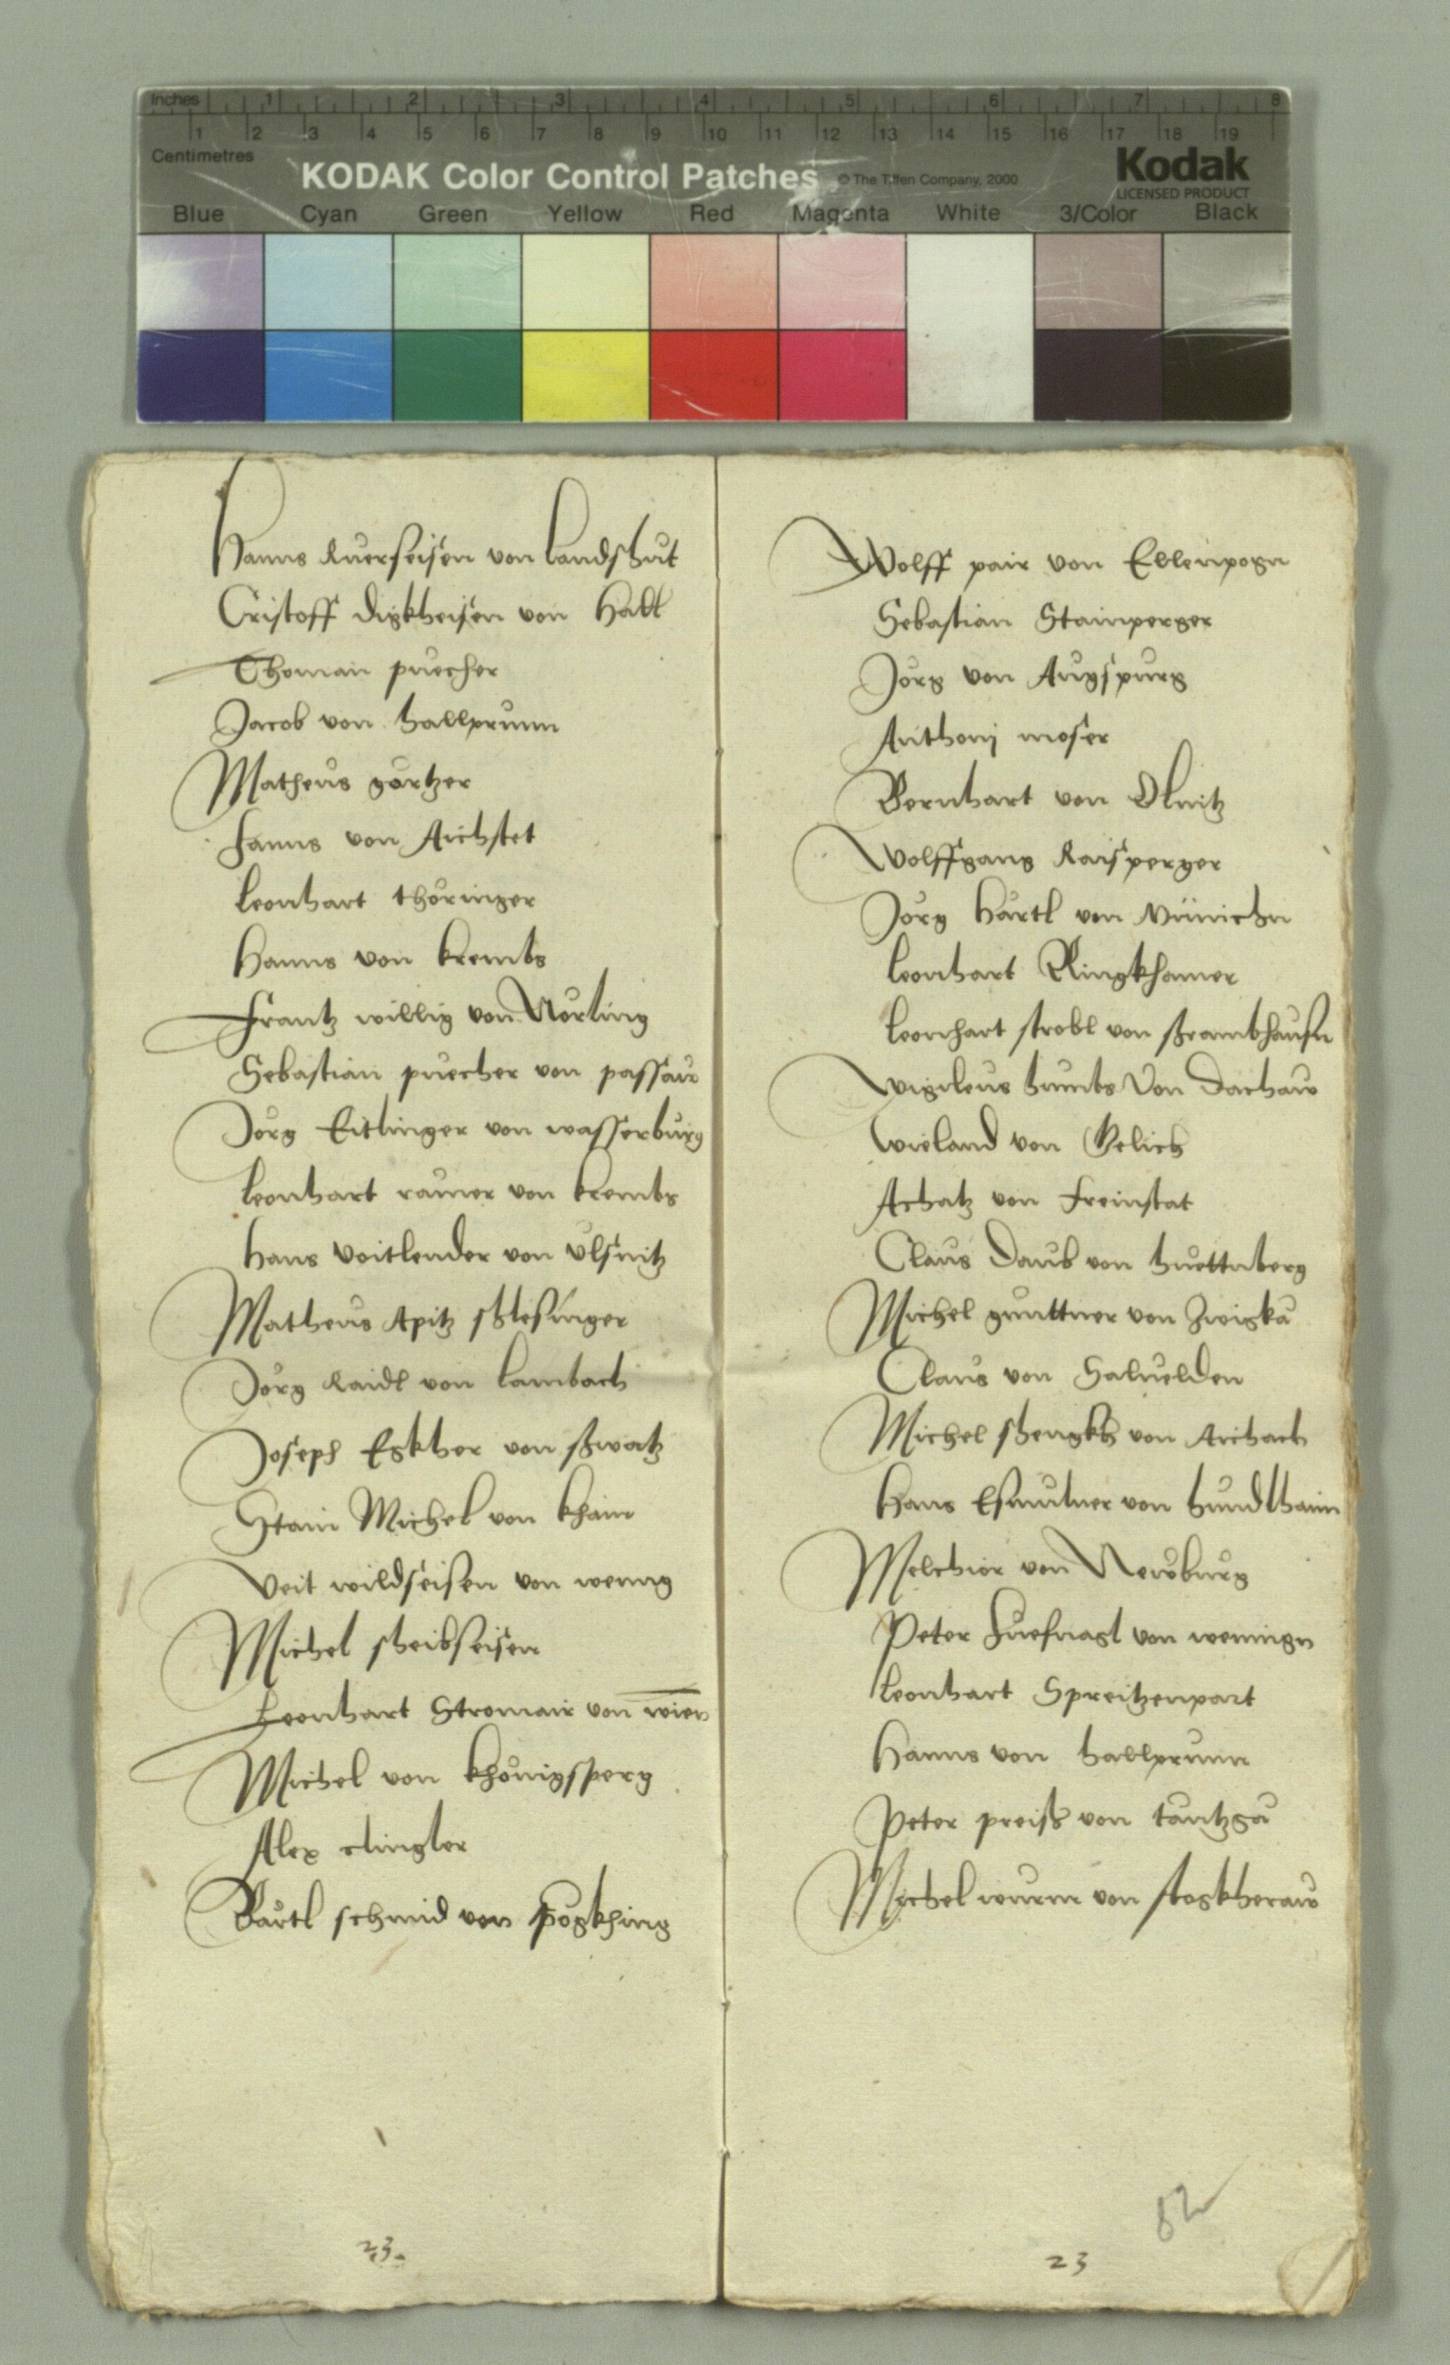 Inches 1 2 3 4 5 6 7 8
1 2 3 4 5 6 7 8 9 10 11 12 13 14 15 16 17 18 19
Centimetres
KODAK Color Control Patches © The Tiffen Company, 2000 Kodak
LICENSED PRODUCT
Blue Cyan Green Yellow Red Magenta White 3/Color Black
Hanns von Landshut
Cristoff digkheisen von Hall
Thoman pruecher
Jacob von hallprunn
Matheus gärtzer
Hanns von Aichstet
Leonhart thöringer
Hanns von krembs
Frantz willig von Nörling
Sebastian pruecher von passaw
Jörg Eitlinger von wasserburg
Leonhart ramer von krembs
Hans Voitlender von ülsnitz
Matheus Apitz schlesinger
Jörg Raidl von Lambach
Joseph Egkher von schwatz
Stain Michel von khain
Veit wildseisen von weng
Michel scheibseisen
Leonhart Stromair von wien
Michel von khönigsperg
Alex clingler
Bärtl schmid von pögkhing
23.
Wolff pair von Ellenpogn
Sebastian Stainperger
Jörg von Augspurg
Anthonj moser
Bernhart von Olmitz
Wolffgang Raisperger
Jörg Härtl von Münichn
Leonhart Ringkhamer
Leonhart strobl von schrambhausn
Wigileus humbs Von Dachaw
Wieland von
Achatz von Freinstat
Claus Daub von huettnberg
Michel günttner von Zwigka
Claus von Saluelden
Michel schengkh von Aichach
Hans von hundlhaim
Melchior von Newburg
Peter Fuesnagl von weningn
Leonhart Spreitzenpart
Hanns von hallprunn
Peter preiss von tantzga
Michel wurm von stogkheraw
82
23